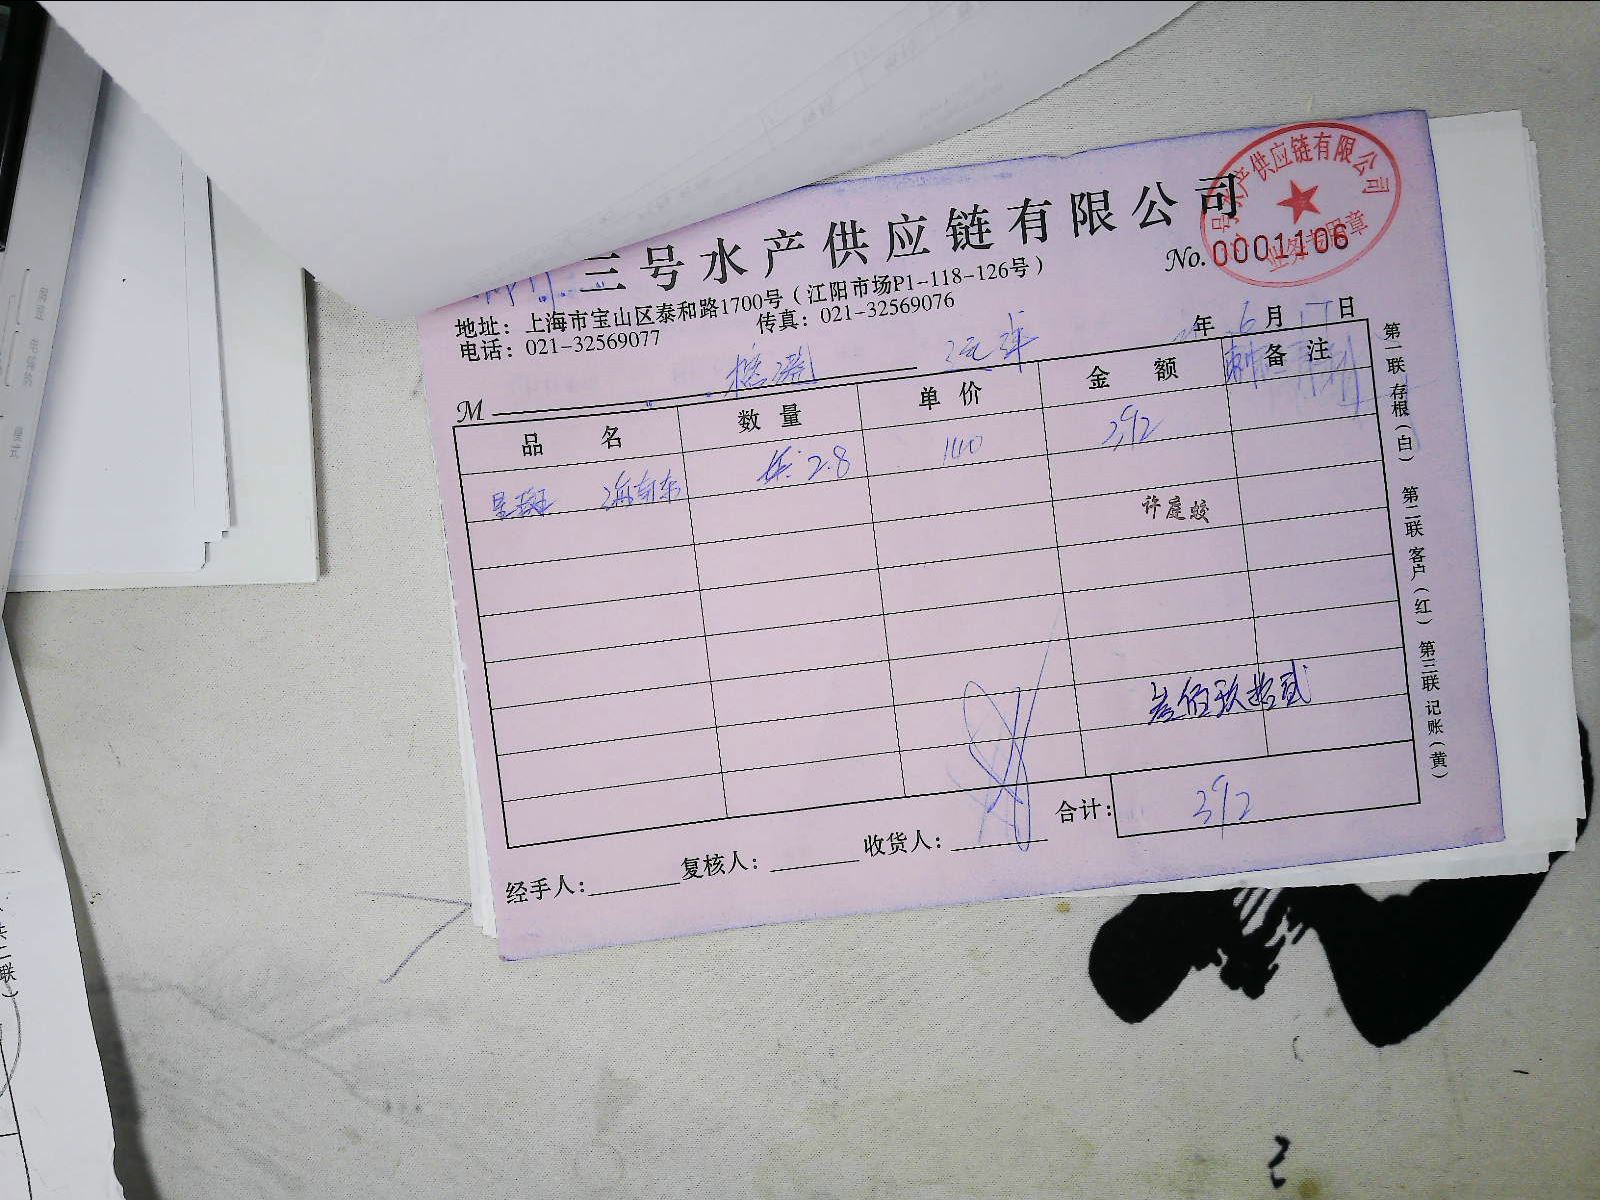 三号水产供应链有限公司
水产供应链有限公司
业务专用章
No. 0001106
地址：上海市宝山区泰和路1700号（江阳市场P1-118-126号）
电话：021-32569077 传真：021-32569076
年 6 月 17 日
M
品名 数量 单价 金额 备注
星斑 2.8 140 392
许庭蛟
叁佰玖拾贰
合计： 392
经手人： 复核人： 收货人：
第一联 存根（白） 第二联 客户（红） 第三联 记账（黄）